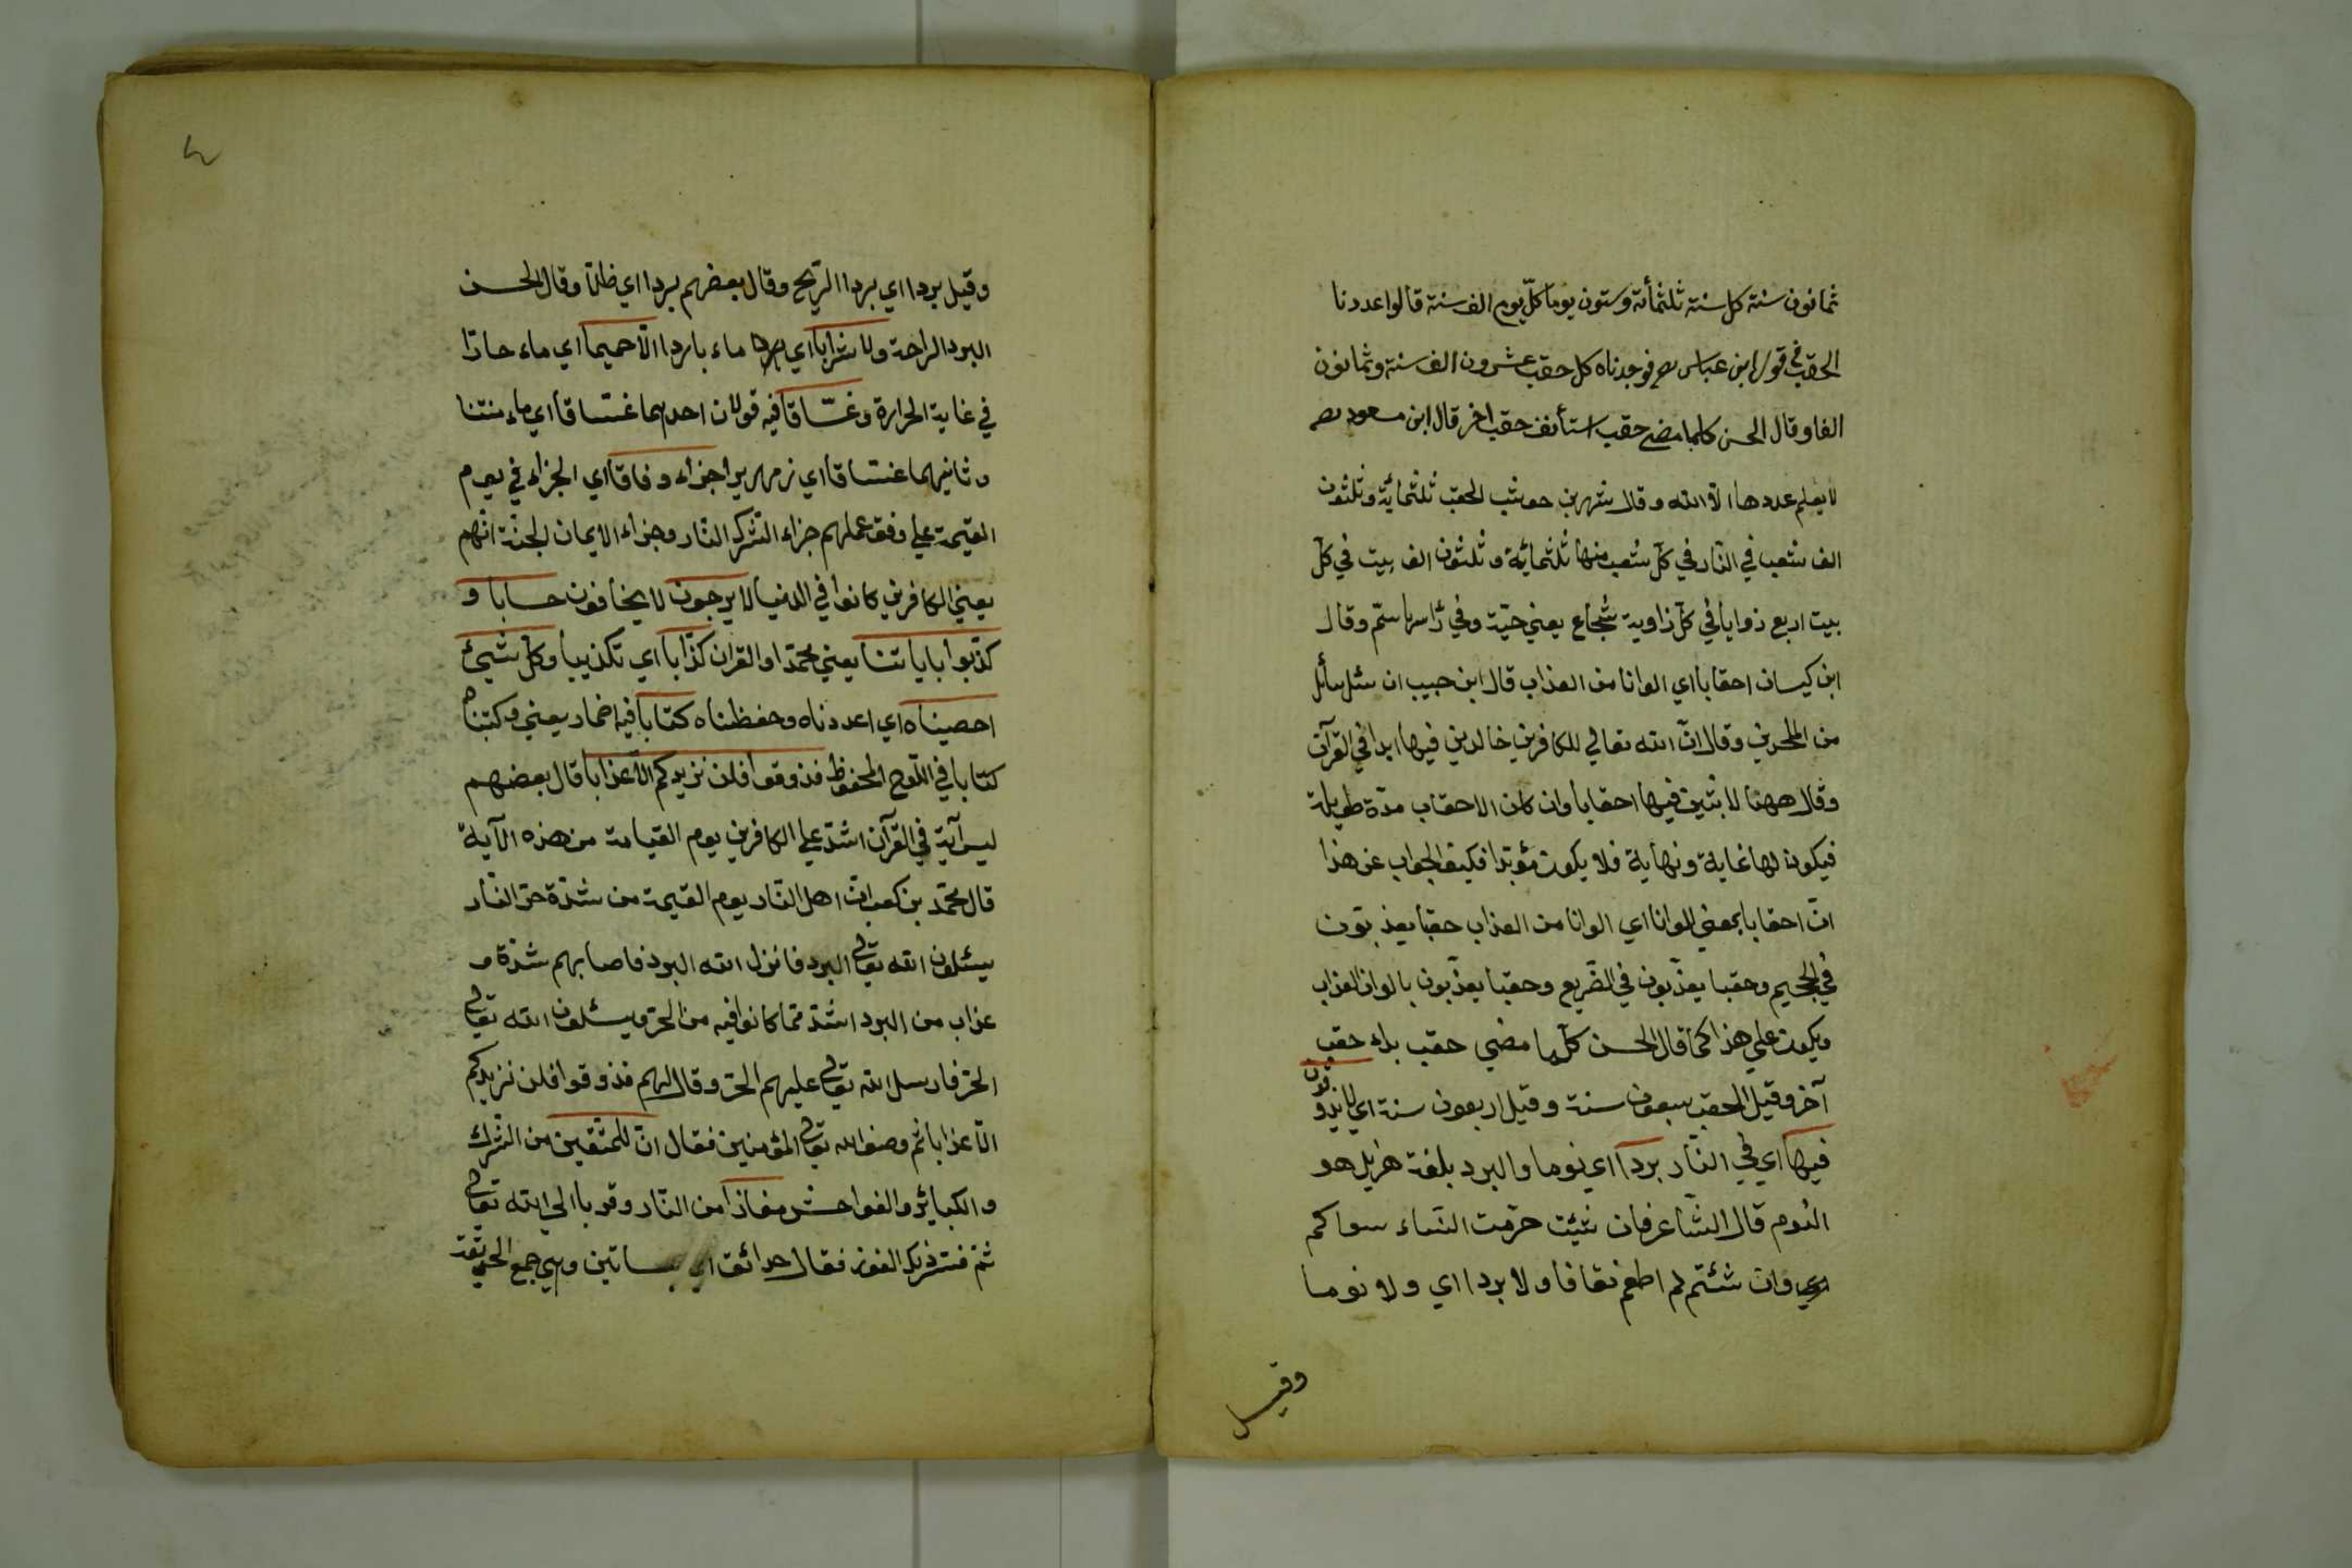 ثمانون سنة كل سنة ثلثمأئة وستون يوما كلّ يوم الف سنة قالوا عددنا
الحقب في قول ابن عباس رضي فوجدناه كل حقب عشرون الف سنة وثمانون
الفا وقال الحسن كلما مضى حقب استأنف حقب اخر قال ابن مسعود رضي
لا يعلم عددها الّا الله وقال شهر بن حوشب الحقب ثلثمائة وثلثون
الف شعب في النّار في كلّ شعب منها ثلثمائة وثلثون الف بيت في كلّ
بيت اربع زوايا في كلّ زاوية شُجاع يعني حيّة وفي رأسها سمّ وقال
ابن كيسان احقابا اي الوانا من العذاب قال ابن حبيب ان سئل سائل
من الملحدين وقال انّ الله تعالي للكافرين خالدين فيها ابدا في القرآن
وقال ههنا لابثين فيها احقابا وان كان الاحقاب مدّة طويلة
فيكون لها غاية ونهاية فلا يكون مؤبّدا فكيف الجواب عن هذا
انّ احقابا بمعني الوانا اي الوانا من العذاب حقبا يعذّبون
في الجحيم وحقبا يعذّبون في الضّريع وحقبا يعذّبون بالوان العذاب
ويكون علي هذا كما قال الحسن كلّما مضي حقب بداء حقب
آخر وقيل الحقب سبعون سنة وقيل اربعون سنة اي لا يذوقون
فيها اي في النّار برداً اي نوما والبرد بلغة هزيل هو
النّوم قال الشّاعر فان شئت حرّمت النّساء سواكم
اي وان شئتم لم اطعم نقاخا ولا بردا اي ولا نوما
وقيل
وقيل بردا اي بردا الرّيح وقال بعضهم بردا اي ظلّا وقال الحسن
البرد الراحة ولا شراباً اي ماء باردا الّا حميماً اي ماء حارّا
في غاية الحرارة وغسّاقاً فيه قولان احدهما غسّاقا اي ماء منتنا
وثانيهما غسّاقا اي زمهريرا جزاء وفاقاً اي الجزاء في يوم
القيمة علي وفق عملهم جزاء الشّرك النّار وجزاء الايمان الجنّة انّهم
يعني الكافرين كانوا في الدنيا لا يرجون لا يخافون حسابا و
كذّبوا باياتنا يعني محمّدا والقران كذّاباً اي تكذيبا وكلّ شيئ
احصيناه اي اعددناه وحفظناه كتاباً فيه اضمار يعني وكتبناه
كتابا في اللّوح المحفوظ فذوقوا فلن نزيدكم الّا عذابا قال بعضهم
ليس آية في القرآن اشدّ علي الكافرين يوم القيامة من هذه الآية
قال محمّد بن كعب انّ اهل النّار يوم القيمة من شدّة حرّ النّار
يسئلون الله تعالي البرد فانزل الله البرد فاصابهم شدّة و
عذاب من البرد اشدّ ممّا كانوا فيه من الحرّ ويسئلون الله تعالي
الحرّ فارسل الله تعالي عليهم الحرّ وقال لهم فذوقوا فلن نزيدكم
الّا عذابا ثم وصف الله تعالي المؤمنين فقال انّ للمتّقين من الشّرك
والكبائر والفواحش مفازاً من النّار وقربا الي الله تعالي
ثمّ فسّر ذلك الفوز فقال حدائق اي بساتين وهي جمع الحديقة